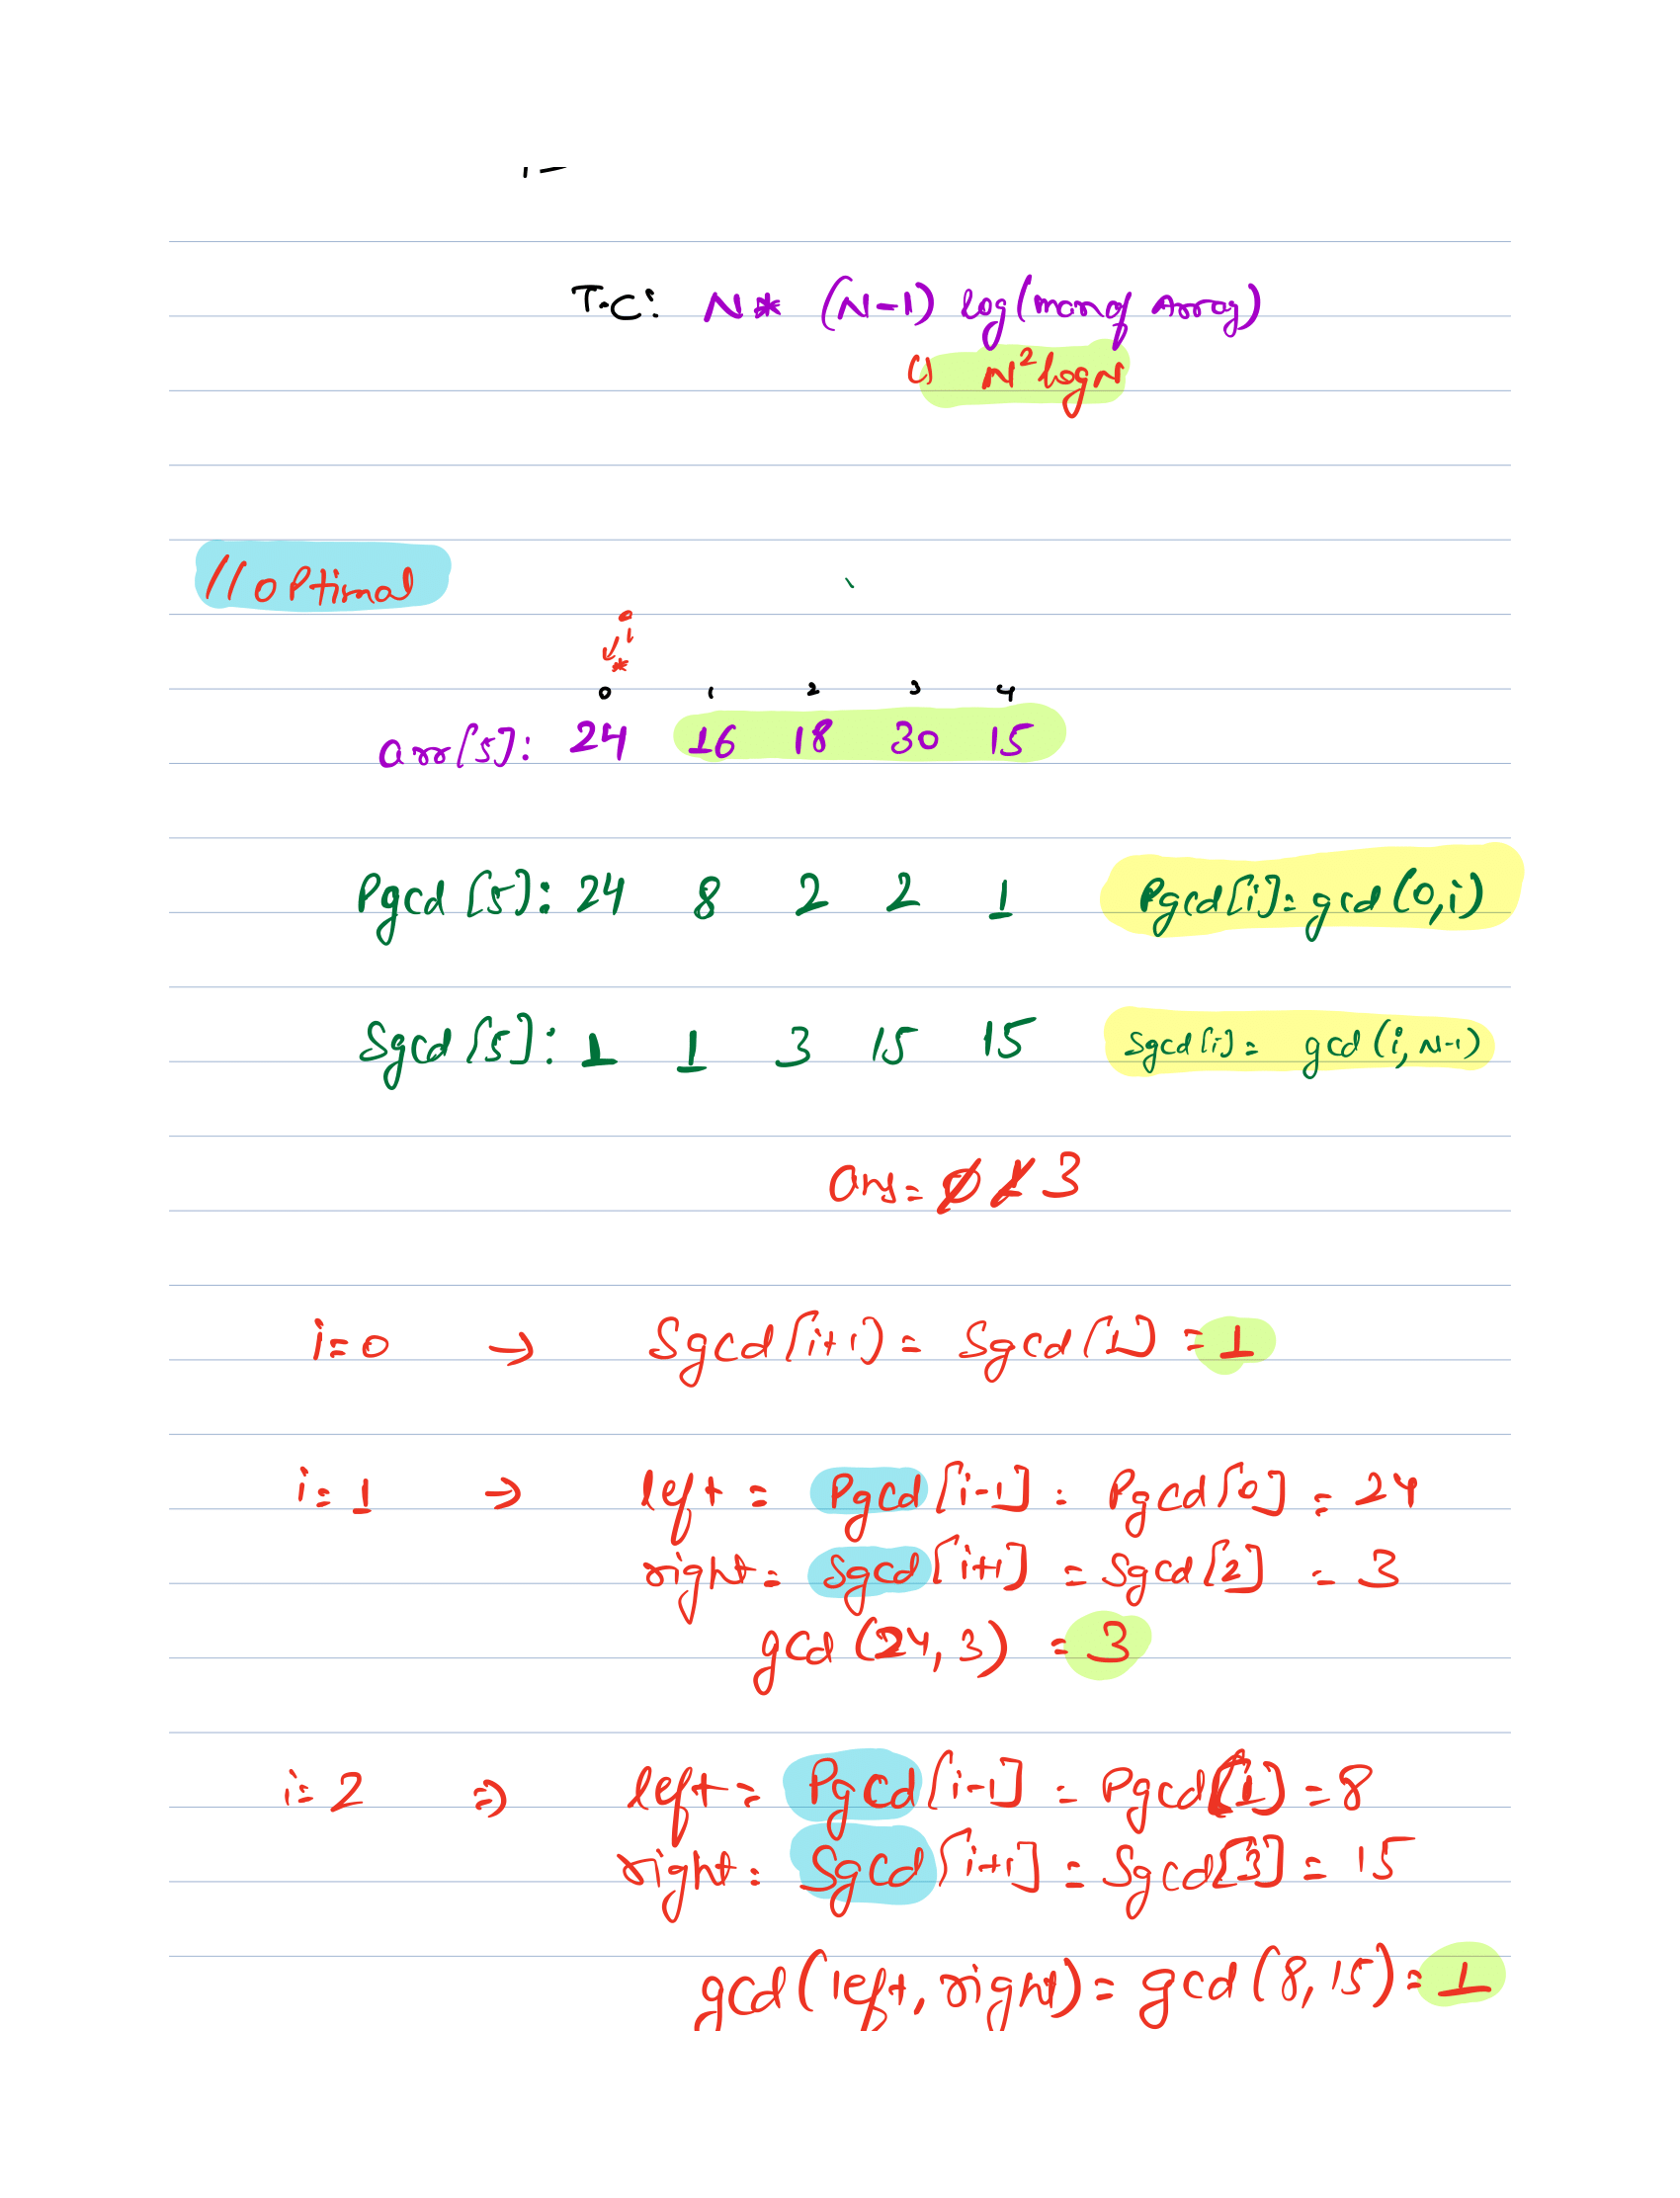 T.C: N* (N-1) log(max of array)
N²logN
//optimal
i
0 1 2 3 4
arr[5]: 24 16 18 30 15
Pgcd[5]: 24 8 2 2 1 Pgcd[i]=gcd(0,i)
Sgcd[5]: 1 1 3 15 15 Sgcd[i]= gcd(i,N-1)
ans= 0 1 3
i=0 → Sgcd[i+1]= Sgcd[1] =1
i=1 → left = Pgcd[i-1] = Pgcd[0] = 24
right= Sgcd[i+1] =Sgcd[2] = 3
gcd(24,3) =3
i=2 => left= Pgcd[i-1] = Pgcd[1] =8
right= Sgcd[i+1] = Sgcd[3] = 15
gcd(left,right)= gcd(8,15)=1